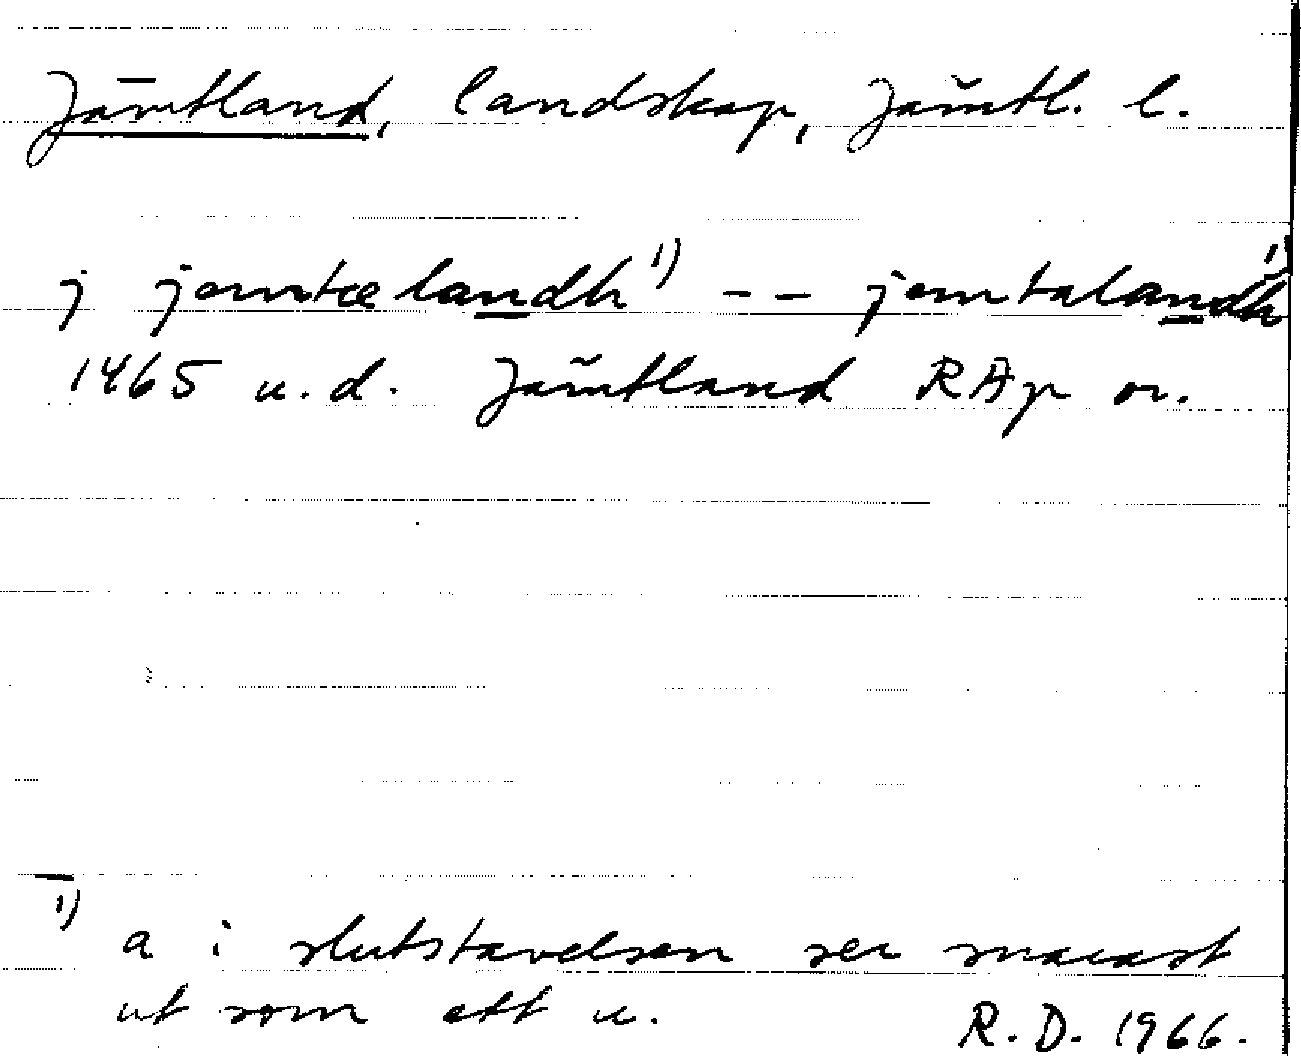 Jämtland, landskap, Jämtl. l.
j jomtælandh 1) -- jomtalandh 1)
1465 u.d. Jämtland RAp or.
1) a i slutstavelsen ser snarast
ut som ett u. R.D. 1966.